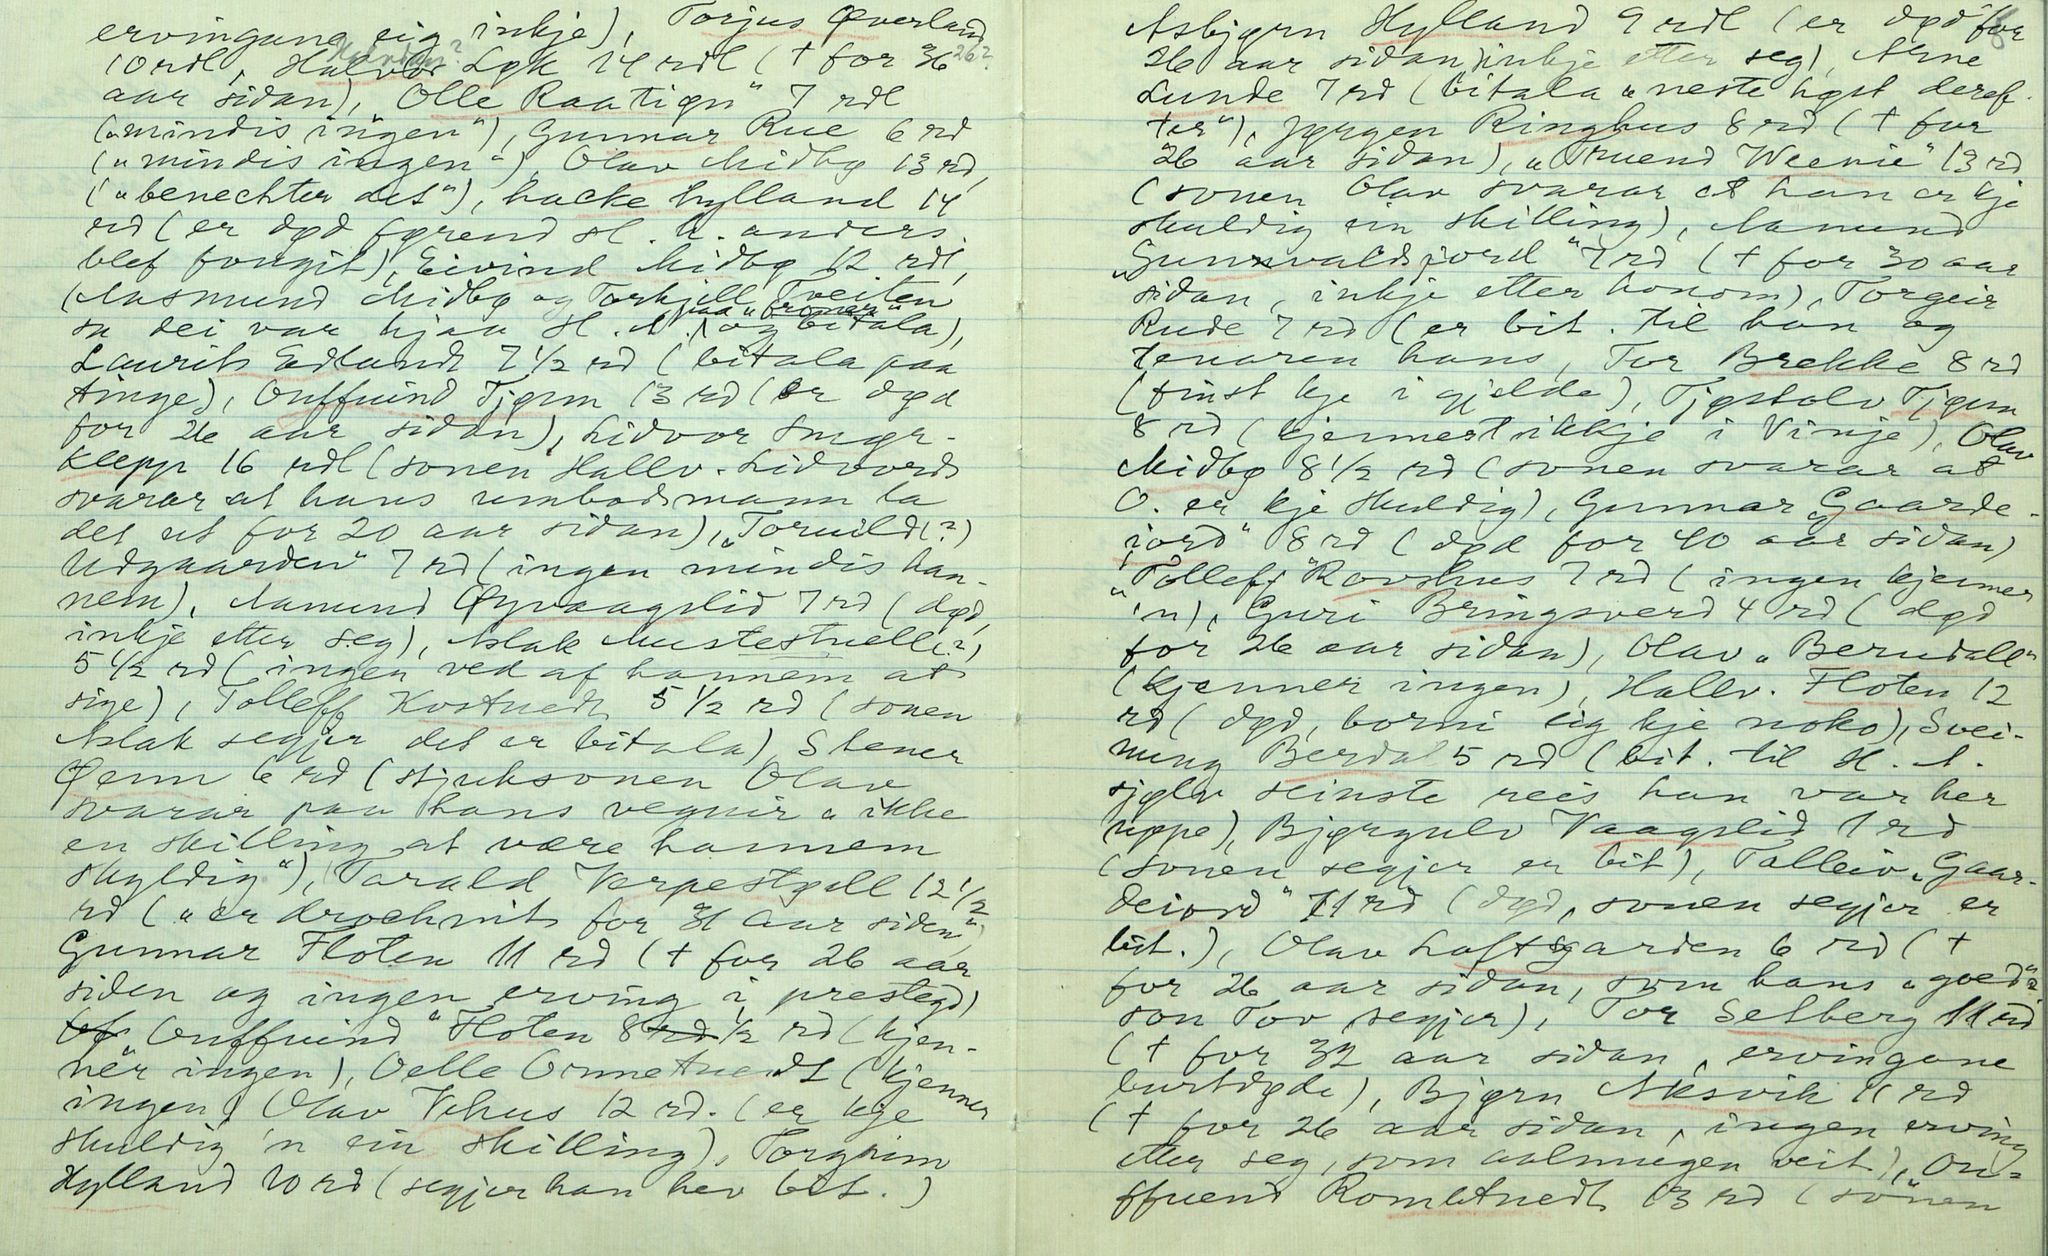 ervingane eig inkje), Torjus Øverland
10 rdl, Halvor Løk 14 rdl († for 36 26?
aar sidan), Olle Raatiøn" 7 rdl
("mindis ingen"), Gunnar Rue 6 rd
("mindis ingen"), Olav Midbø 13 rd,
("benechter det"), hacke hylland 14
rd (er død førend H. N. anders
blef fongit), Eivind Midbø 12 rdl,
(Aasmund Midbø og Torkjill Tveiten
sa dei var hjaa H. N. og bitala),
Laurits Edland 7 1/2 rd (bitala paa
tinge), Ouffuind Tjønn 13 rd (er død
for 26 aar sidan), Lidvor Smør-
klepp 16 rdl (sonen Hallv. Lidvords
svarar at hans umbodsmann la
det ut for 20 aar sidan), "Toruild (?)
Udgaarden" 7 rd (ingen mindis han-
nem), Aamund Øyvaagslid 7 rd (død,
inkje etter seg), Aslak Mustestuell (?)
5 1/2 rd (ingen ved af hannem at
sige), Tolleff Kostuedt 5 1/2 rd (sonen
Aslak segjer det er bitala), Stener
Øenn 6 rd (stjuksonen Olav
svarar paa hans vegnir "ikke
en skilling at være hannem
skyldig"), Tarald Verpestøll 12 1/2
rd ("er drochnit for 31 aar siden",
Gunnar Floten 11 rd († for 26 aar
siden og ingen erving i prestegd)
"Ouffuind" Floten 8 1/2 rd (kjen-
ner ingen), Oelle Ormetuedt (kjenner
ingen) Olav Vehus 12 rd. (er kje
skuldig 'n ein skilling), Torgrim
Hylland 10 rd (segjer han hev bit.)
Asbjørn Hylland 9 rdl (er død for
26 aar sidan, inkje etter seg), Arne
Lunde 7 rd (bitala "neste høst deref-
ter"), Jørgen Ringhus 8 rd († for
26 aar sidan), "Truend Weenie" 13 rd
(sonen Olav svarar at han er kje
skuldig ein skilling), Aamund
"Gunnvaldsjord" 7 rd († for 30 aar
sidan, inkje etter honom), Torgeir
Rude 7 rd (er bit. til hån og
tenaren hans, Tor Brekke 8 rd
(finst kje i gjelde), Tjøstolv Tjønn
8 rd (kjennest ikkje i Vinje), Olav
Midbø 8 1/2 rd (sonen svarar at
O. er kje skuldig), Gunnar "Gaarde-
iord" 8 rd (død for 40 aar sidan)
"Tolleff" Rovshus 7 rd (ingen kjenner
'n), Guri Bringsverd 4 rd (død
for 26 aar sidan), Olav "Berudall"
(kjenner ingen), Hallv. Floten 12
rd (død, borni eig kje noko), Svei-
nung Berdal 5 rd (bit. til H. N.
sjølv seinste reis han var her
uppe), Bjørgulv Vaagslid 1 rd
(sonen segjer er bit), Talleiv "Gaar-
deiord" 11 rd (død, sonen segjer er
bit.), Olav Loftsgarden 6 rd (†
for 26 aar sidan, som hans "goed"
son Tov segjer), Tor Selberg 11 rd
(† for 32 aar sidan, ervingane
burtdøde), Bjørn Aksvik 11 rd
(† for 26 aar sidan, ingen erving
etter seg, som aalmugen veit), On-
ffuend Rometuedt 13 rd (sonen